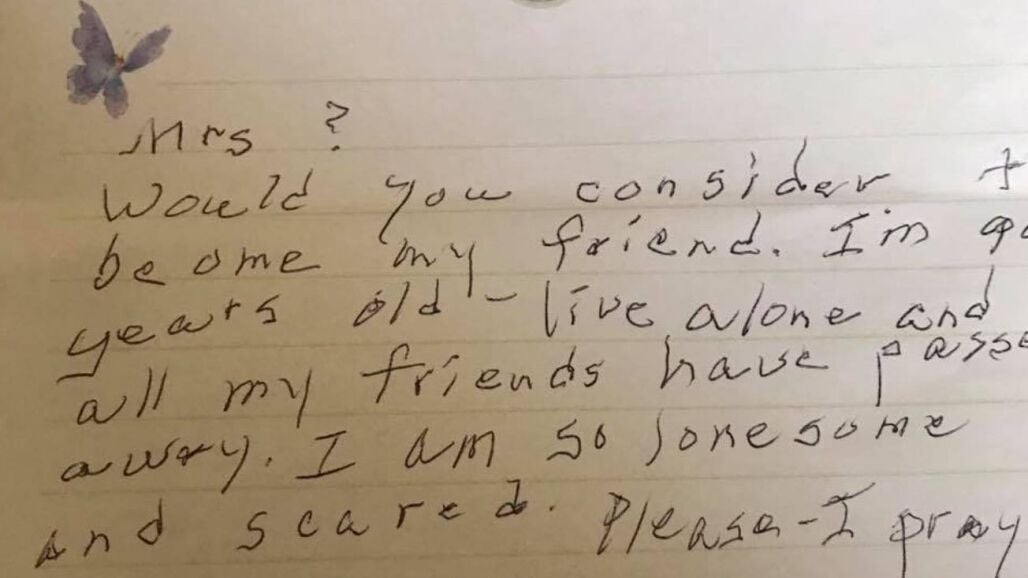 Mrs ?
Would you consider t
become my friend. I'm 90
years old - live alone and
all my friends have passe
away. I am so lonesome
and scared. Please - I pray